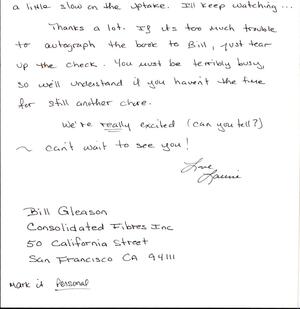 a little slow on the uptake. I'll keep watching...
Thanks a lot. If its too much trouble
to autograph the book to Bill, just tear
up the check. You must be terribly busy,
so we'll understand if you haven't the time
for still another chore.
We're really excited (can you tell?)
~ can't wait to see you!
Love
Laurie
Bill Gleason
Consolidated Fibres Inc
50 California Street
San Francisco CA 94111
Mark it Personal